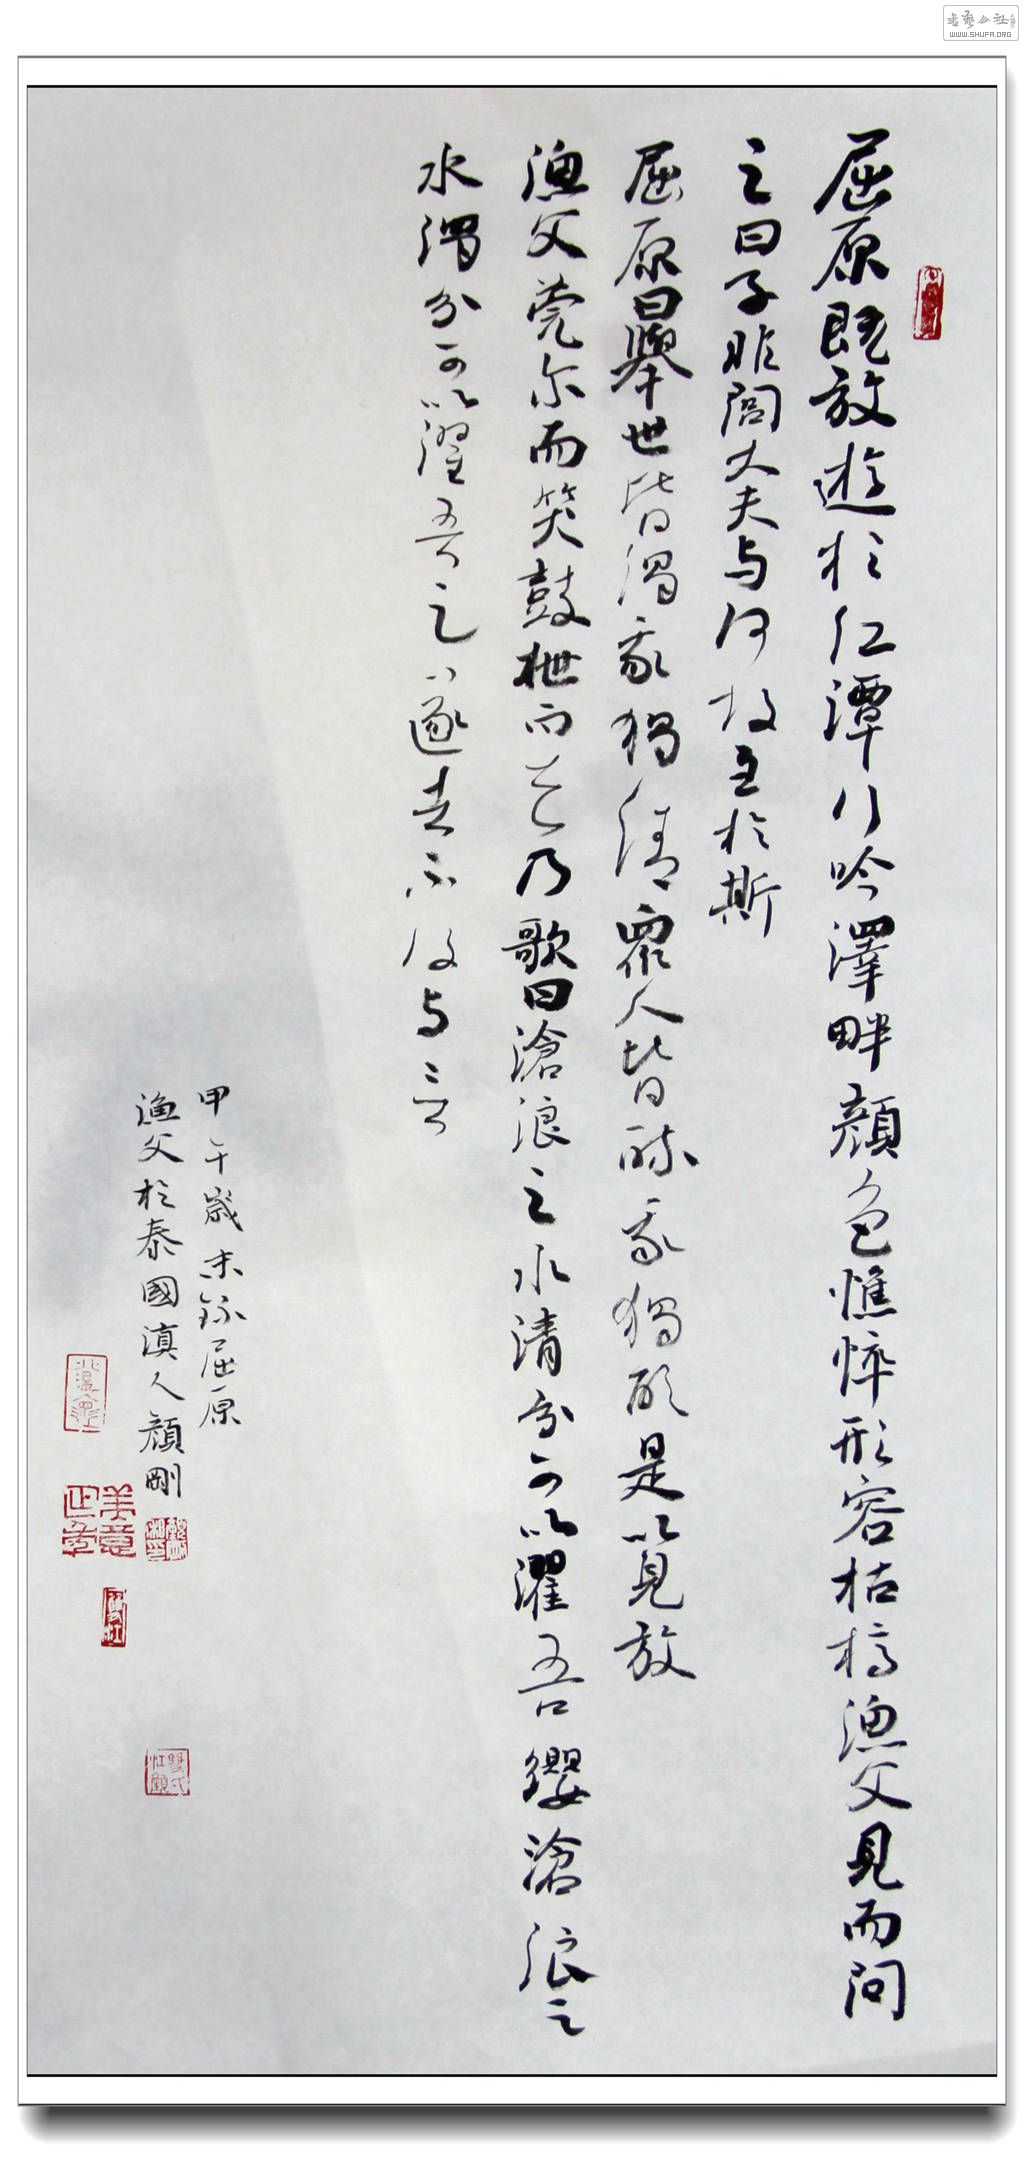 屈原既放遊於江潭行吟澤畔顔色憔悴形容枯槁漁父見而問
之曰子非閭大夫与何故至於斯
屈原曰舉世皆濁我獨清眾人皆醉我獨醒是以見放
漁父莞尔而笑鼓枻而去乃歌曰滄浪之水清兮可以濯吾纓滄浪之
水濁兮可以濯吾足遂去不復与言
甲午歲末錄屈原
漁父於泰國滇人顔剛
書藝公社
WWW.SHUFA.ORG